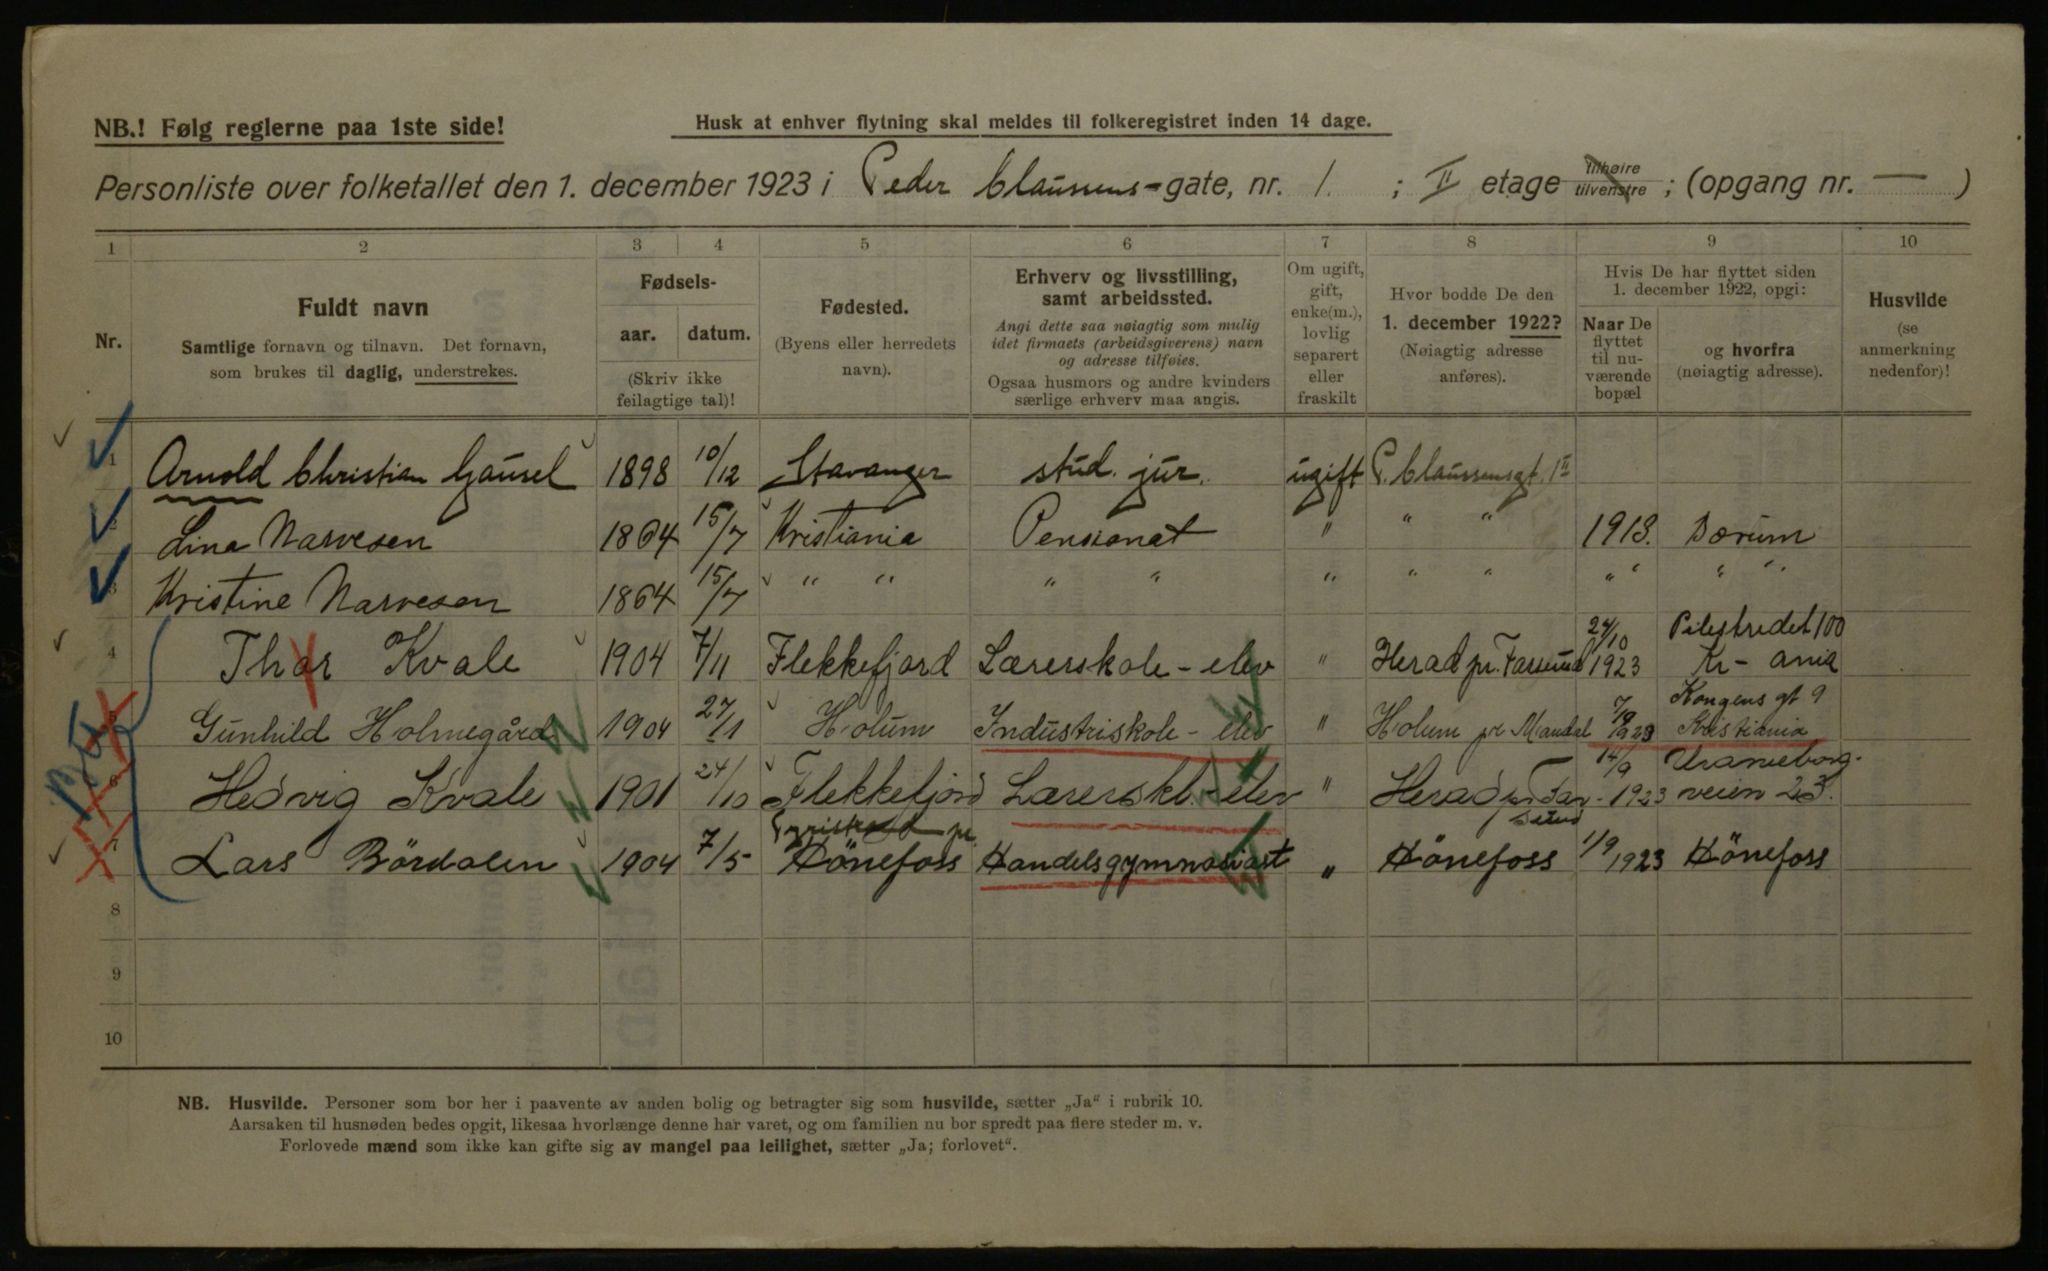 NB.! Følg reglerne paa 1ste side!
Husk at enhver flytning skal meldes til folkeregistret inden 14 dage.
Personliste over folketallet den 1. december 1923 i Peder Claussens-gate, nr. 1. ; II etage tilhøire tilvenstre ; (opgang nr. — )
1 2 3 4 5 6 7 8 9 10
Nr.
Fuldt navn
Samtlige fornavn og tilnavn. Det fornavn,
som brukes til daglig, understrekes.
Fødsels-
aar. datum.
(Skriv ikke
feilagtige tal)!
Fødested.
(Byens eller herredets
navn).
Erhverv og livsstilling,
samt arbeidssted.
Angi dette saa nøiagtig som mulig
idet firmaets (arbeidsgiverens) navn
og adresse tilføies.
Ogsaa husmors og andre kvinders
særlige erhverv maa angis.
Om ugift,
gift,
enke(m.),
lovlig
separert
eller
fraskilt
Hvor bodde De den
1. december 1922?
(Nøiagtig adresse
anføres).
Hvis De har flyttet siden
1. december 1922, opgi:
Naar De
flyttet
til nu-
værende
bopæl
og hvorfra
(nøiagtig adresse).
Husvilde
(se
anmerkning
nedenfor)!
1 Arnold Christian Gausel 1898 10/12 Stavanger stud. jur. ugift P. Claussensgt. 1 II
2 Lina Narvesen 1864 15/7 Kristiania Pensionat " " " 1913. Bærum
3 Kristine Narvesen 1864 15/7 " " " " " " " " " " "
4 Thor Kvale 1904 7/11 Flekkefjord Lærerskole-elev " Herad pr. Farsund 24/10 1923 Pilestredet 100 Kr-ania
5 Gunhild Holmegård 1904 27/1 Holum Industriskole-elev " Holum pr Mandal 7/9 1923 Kongens gt 9 Kristiania
6 Hedvig Kvale 1901 24/10 Flekkefjord Lærerskl.-elev " Herad pr Farsund 14/9 1923 Uranieborg-veien 23.
7 Lars Bördalen 1904 7/5 pr. Hönefoss Handelsgymnasiast " Hönefoss 1/9 1923 Hönefoss
8
9
10
NB. Husvilde. Personer som bor her i paavente av anden bolig og betragter sig som husvilde, sætter „Ja“ i rubrik 10.
Aarsaken til husnøden bedes opgit, likesaa hvorlænge denne har varet, og om familien nu bor spredt paa flere steder m. v.
Forlovede mænd som ikke kan gifte sig av mangel paa leilighet, sætter „Ja; forlovet“.